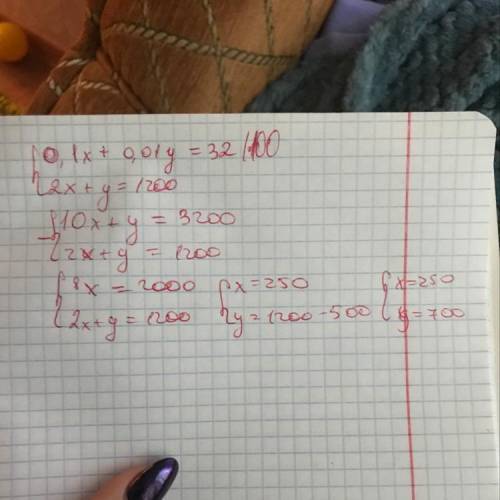 0,1x + 0,01y = 32 /·100
2x + y = 1200
10x + y = 3200
2x + y = 1200
8x = 2000 x = 250 x = 250
2x + y = 1200 y = 1200 - 500 y = 700